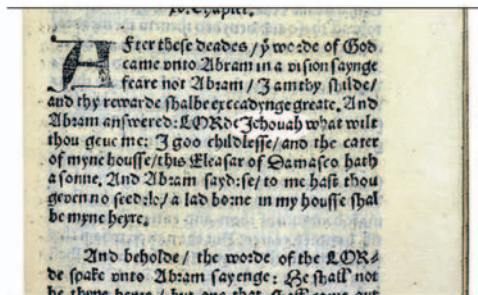 xv. Chapter.
After these deades / ẏ worde of God
came vnto Abram in a vision saynge
feare not Abram / I am thy shilde /
and thy rewarde shalbe exceadynge greate. And
Abram answered: LORde Jehouah what wilt
thou geue me: I goo childlesse / and the cater
of myne housse / this Eleasar of Damasco hath
a sonne. And Abram sayd: se / to me hast thou
geven no seed: lo / a lad borne in my housse shal
be myne heyre.
And beholde / the worde of the LOR-
de spake vnto Abram sayenge: He shall not
be thyne heyre / but one that shall come out